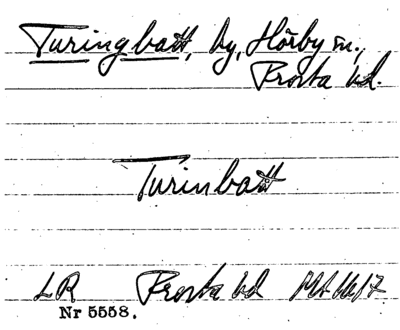 Turingbatt, by, Hörby sn.,
Frosta hd.
Turinbatt
LR Frosta hd
Nr 5558.